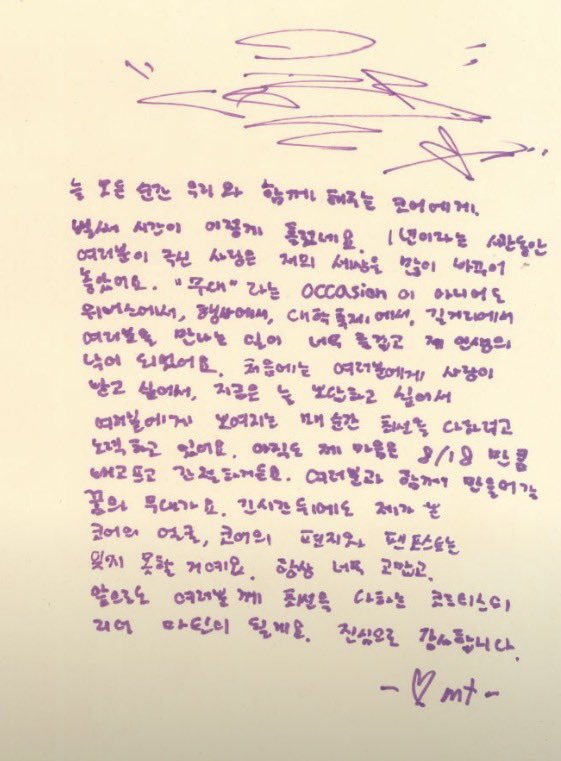 늘 모든 순간 우리와 함께 해주는 코어에게.
벌써 시간이 이렇게 흘렀네요. 1년이라는 시간동안
여러분이 주신 사랑은 저의 세상을 많이 바꾸어
놓았어요. "무대" 라는 occasion이 아니어도
위버스에서, 행사에서, 대학축제에서, 길거리에서
여러분을 만나는 일이 너무 즐겁고 제 인생의
낙이 되었어요. 처음에는 여러분에게 사랑이
받고 싶어서, 지금은 늘 보답하고 싶어서
여러분에게 보여지는 매 순간 최선을 다하려고
노력하고 있어요. 아직도 제 마음은 8/18 만큼
배고프고 간절하거든요. 여러분과 함께 만들어갈
꿈의 무대가요. 긴시간 뒤에도 제가 눈
코어의 얼굴, 코어의 편지와 팬포스트는
잊지 못할 거예요. 항상 너무 고맙고.
앞으로도 여러분께 최선을 다하는 코르티스의
리더 마틴이 될게요. 진심으로 감사합니다.
- ♡ mt -